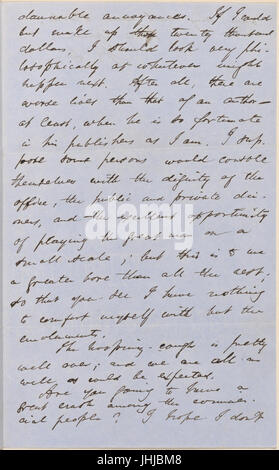 damnable annoyances. If I could
but make up twenty thousand
dollars, I should look very phi-
losophically at whatever might
happen next. After all, there are
worse lives than that of an author—
at least, when he is so fortunate
in his publishers as I am. I sup-
pose some persons would console
themselves with the dignity of the
office, the public and private din-
ners, and the excellent opportunity
of playing the great man on a
small scale; but this is to me
a greater bore than all the rest,
so that you see I have nothing
to comfort myself with but the
emoluments.
The hooping-cough is pretty
well over; and we are all as
well as could be expected.
Are you going to have a
great crash among the commer-
cial people? I hope I don't
alamy stock photo
JHJBM8
www.alamy.com